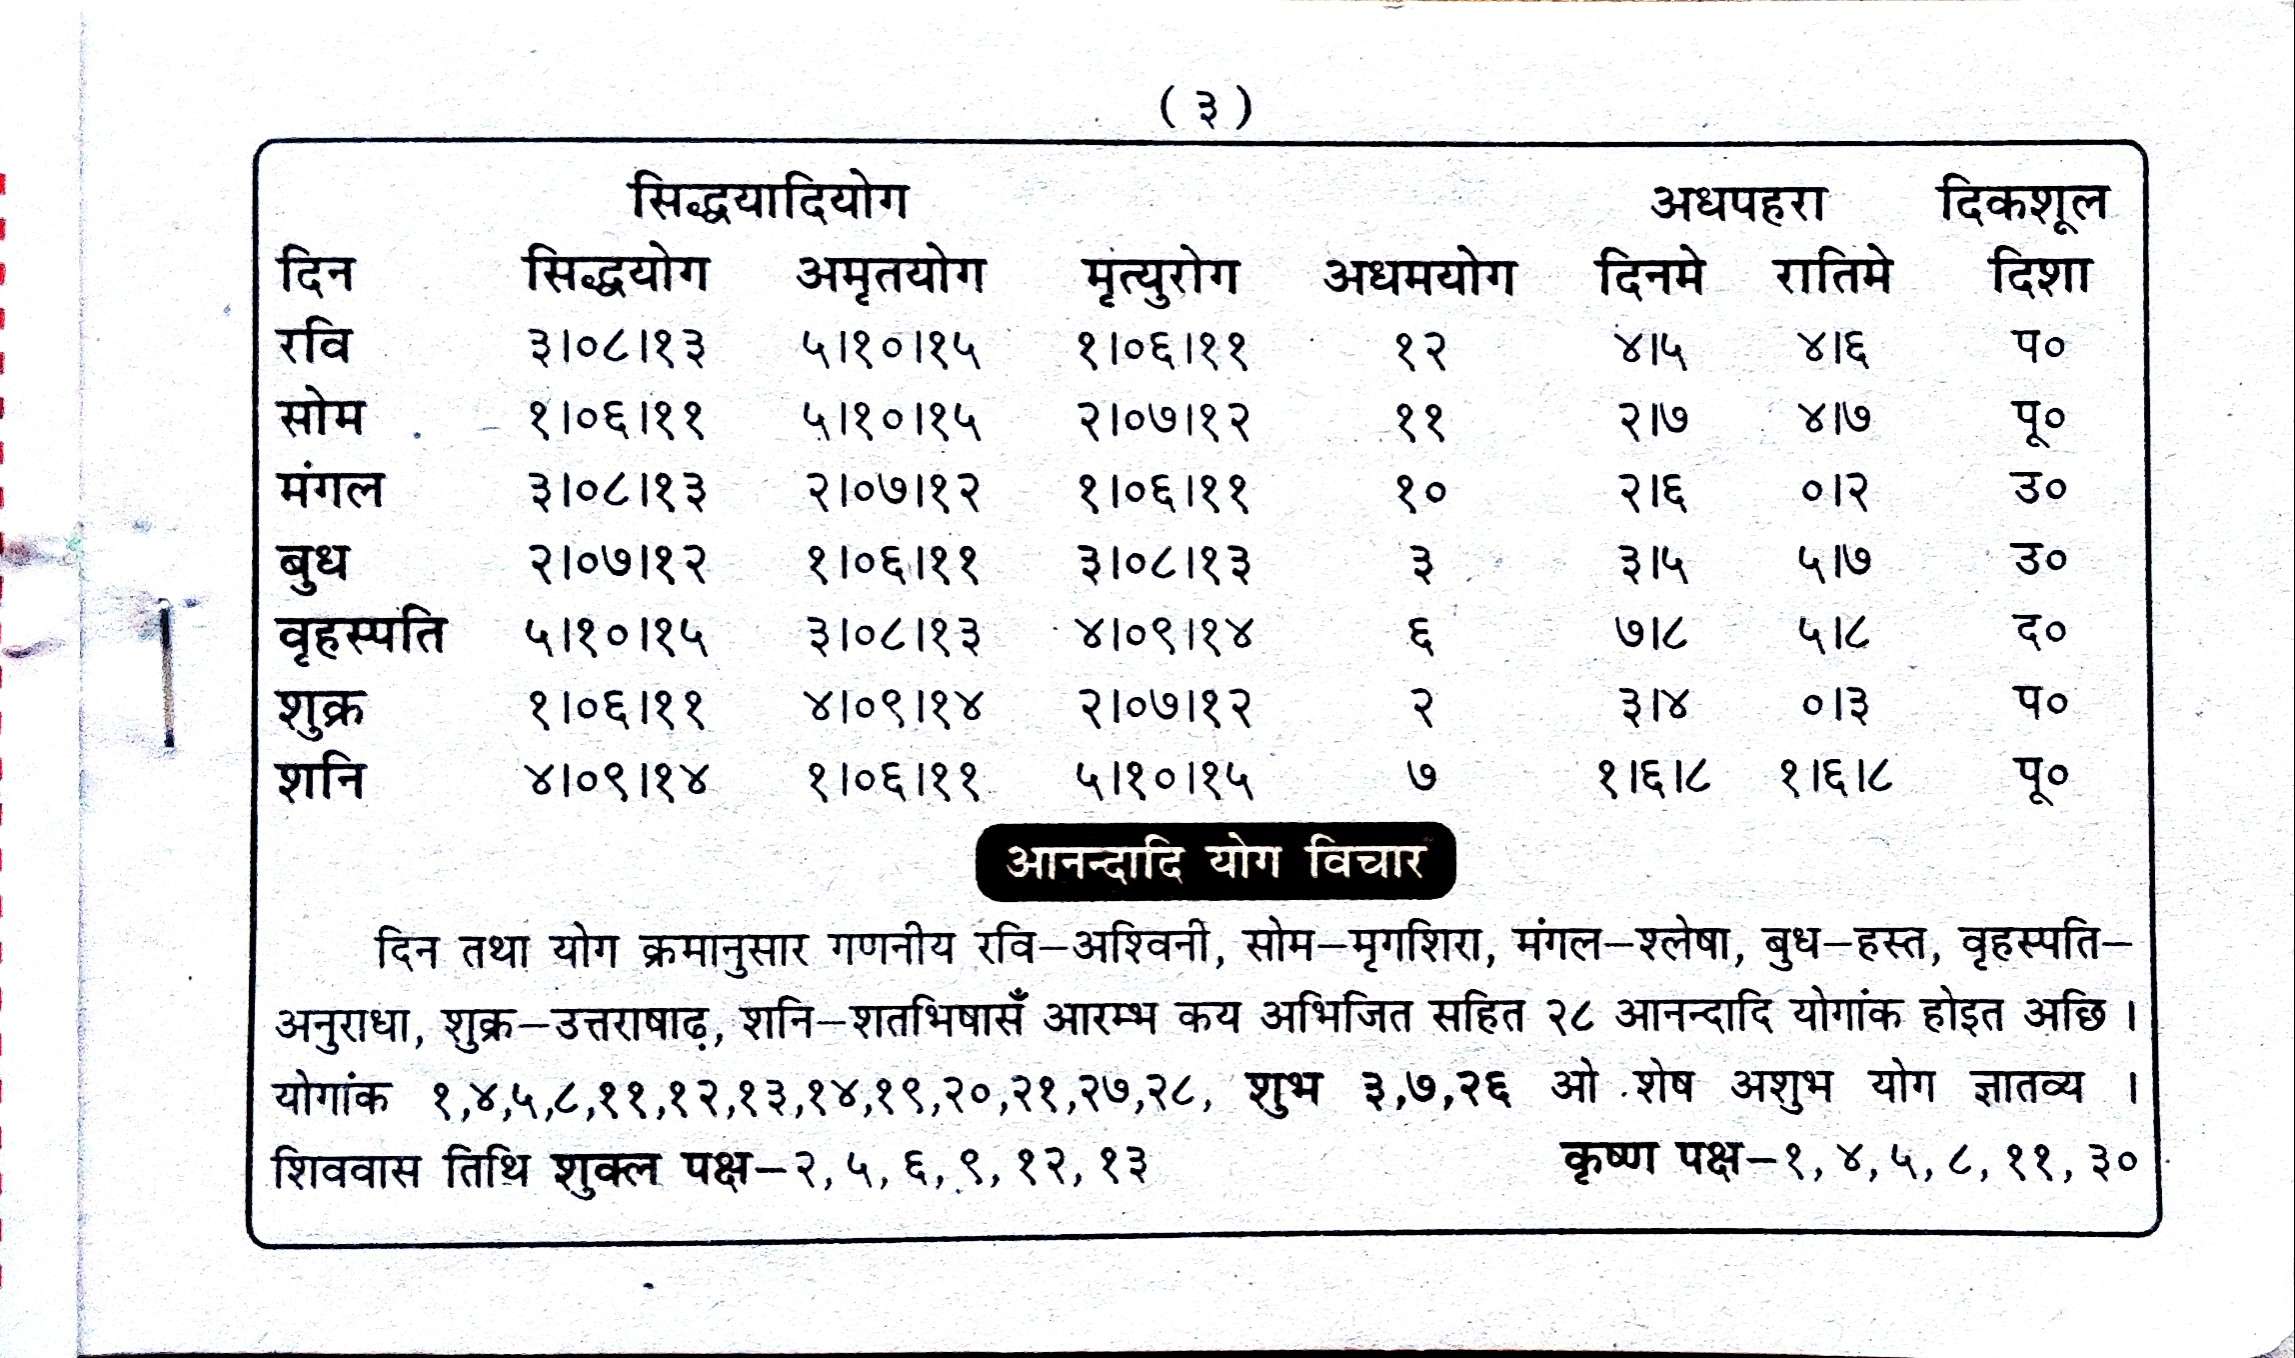 ( ३ )
सिद्धयादियोग अधपहरा दिकशूल
दिन सिद्धयोग अमृतयोग मृत्युरोग अधमयोग दिनमे रातिमे दिशा
रवि ३।०८।१३ ५।१०।१५ १।०६।११ १२ ४।५ ४।६ प०
सोम १।०६।११ ५।१०।१५ २।०७।१२ ११ २।७ ४।७ पू०
मंगल ३।०८।१३ २।०७।१२ १।०६।११ १० २।६ ०।२ उ०
बुध २।०७।१२ १।०६।११ ३।०८।१३ ३ ३।५ ५।७ उ०
वृहस्पति ५।१०।१५ ३।०८।१३ ४।०९।१४ ६ ७।८ ५।८ द०
शुक्र १।०६।११ ४।०९।१४ २।०७।१२ २ ३।४ ०।३ प०
शनि ४।०९।१४ १।०६।११ ५।१०।१५ ७ १।६।८ १।६।८ पू०
आनन्दादि योग विचार
दिन तथा योग क्रमानुसार गणनीय रवि–अश्विनी, सोम–मृगशिरा, मंगल–श्लेषा, बुध–हस्त, वृहस्पति–
अनुराधा, शुक्र–उत्तराषाढ़, शनि–शतभिषासँ आरम्भ कय अभिजित सहित २८ आनन्दादि योगांक होइत अछि ।
योगांक १,४,५,८,११,१२,१३,१४,१९,२०,२१,२७,२८, शुभ ३,७,२६ ओ शेष अशुभ योग ज्ञातव्य ।
शिववास तिथि शुक्ल पक्ष–२, ५, ६, ९, १२, १३ कृष्ण पक्ष–१, ४, ५, ८, ११, ३०